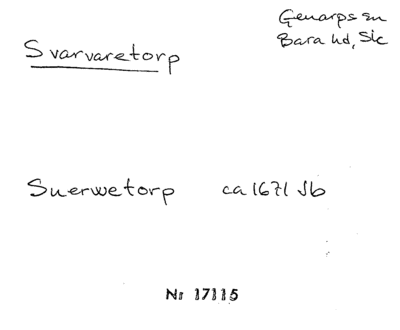 Genarps sn
Bara hd, Sk
Svarvaretorp
Suerwetorp ca 1671 Jb
Nr 17115